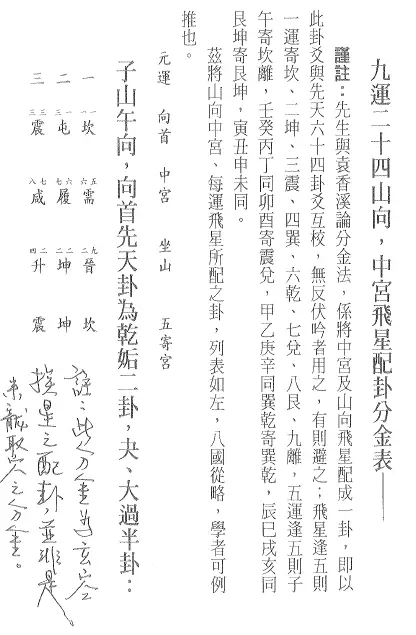 九運二十四山向，中宮飛星配卦分金表——
謹註：先生與袁香溪論分金法，係將中宮及山向飛星配成一卦，即以
此卦爻與先天六十四卦爻互校，無反伏吟者用之，有則避之；飛星逢五則
一運寄坎、二坤、三震、四巽、六乾、七兌、八艮、九離，五運逢五則子
午寄坎離，壬癸丙丁同卯酉寄震兌，甲乙庚辛同巽乾寄巽乾，辰巳戌亥同
艮坤寄艮坤，寅丑申未同。
茲將山向中宮、每運飛星所配之卦，列表如左，八國從略，學者可例
推也。
元運 向首 中宮 坐山 五寄宮
子山午向，向首先天卦為乾姤二卦，夬、大過半卦：
一 一一坎 六五需 二九晉 坎
二 三一屯 七六履 二二坤 坤
三 三三震 八七咸 四二升 震
註：此分金為玄空
挨星之配卦，並非是
來龍取穴之分金。